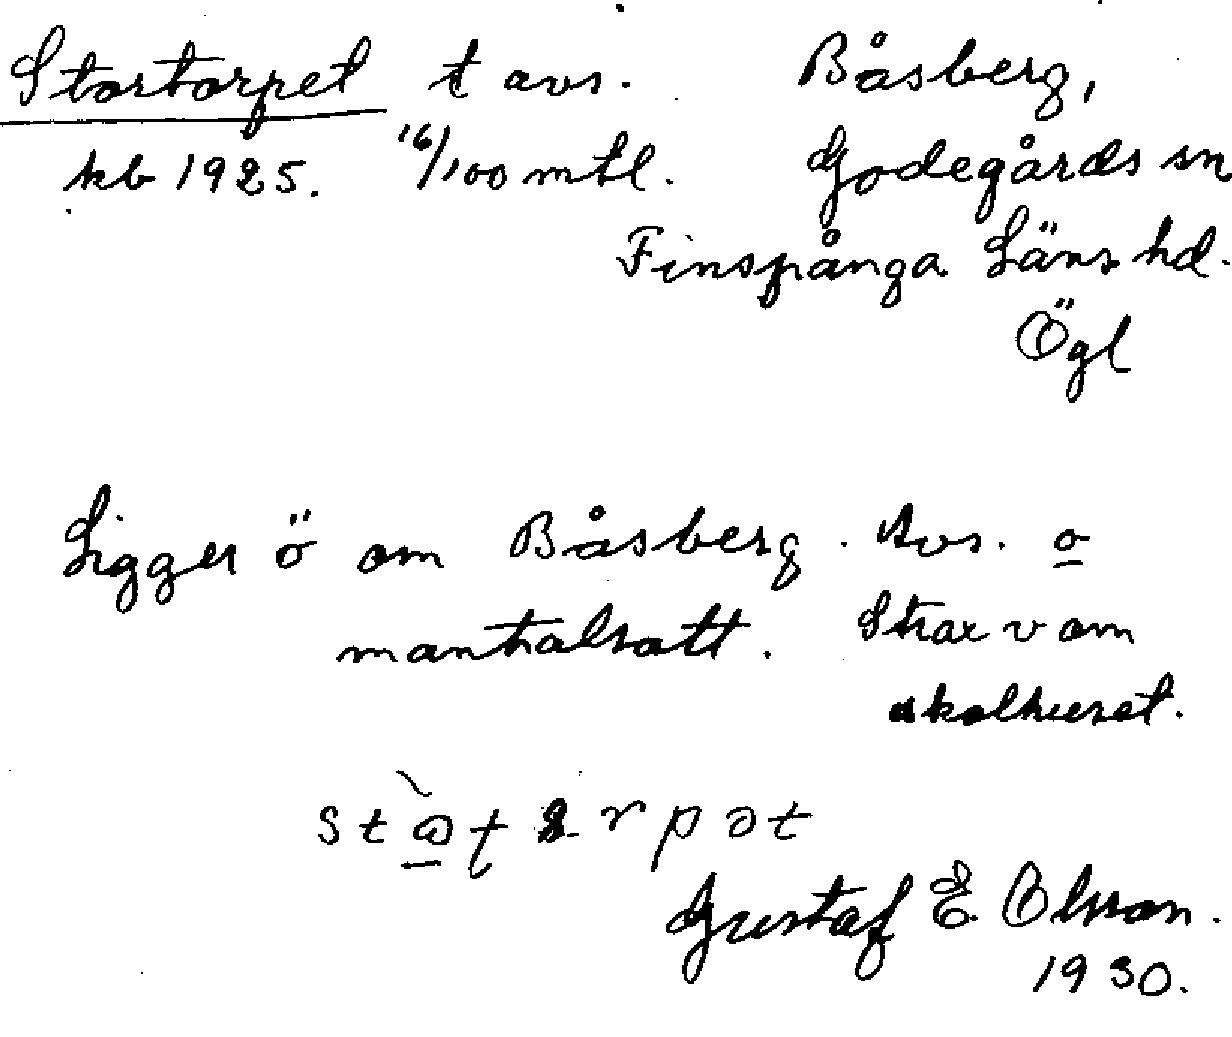 Stortorpet t avs. Båsberg,
kb 1925. 16/100 mtl. Godegårds sn
Finspånga Läns hd.
Ögl
Ligger ö om Båsberg. Avs. o
mantalsatt. Strax v om
skolhuset.
Gustaf E Olsson.
1930.